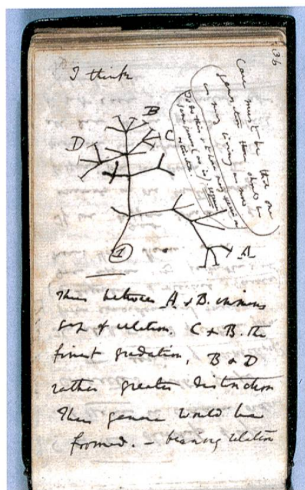 I think
B
D
C
A
1
36
Case must be that one
generation then should be
as many living as now
To do this & to have many species in
same genus (as is) requires
extinction.
Thus between A & B. immens
gap of relation. C & B. the
finest gradation, B & D
rather greater distinction
Thus genera would be
formed. — bearing relation